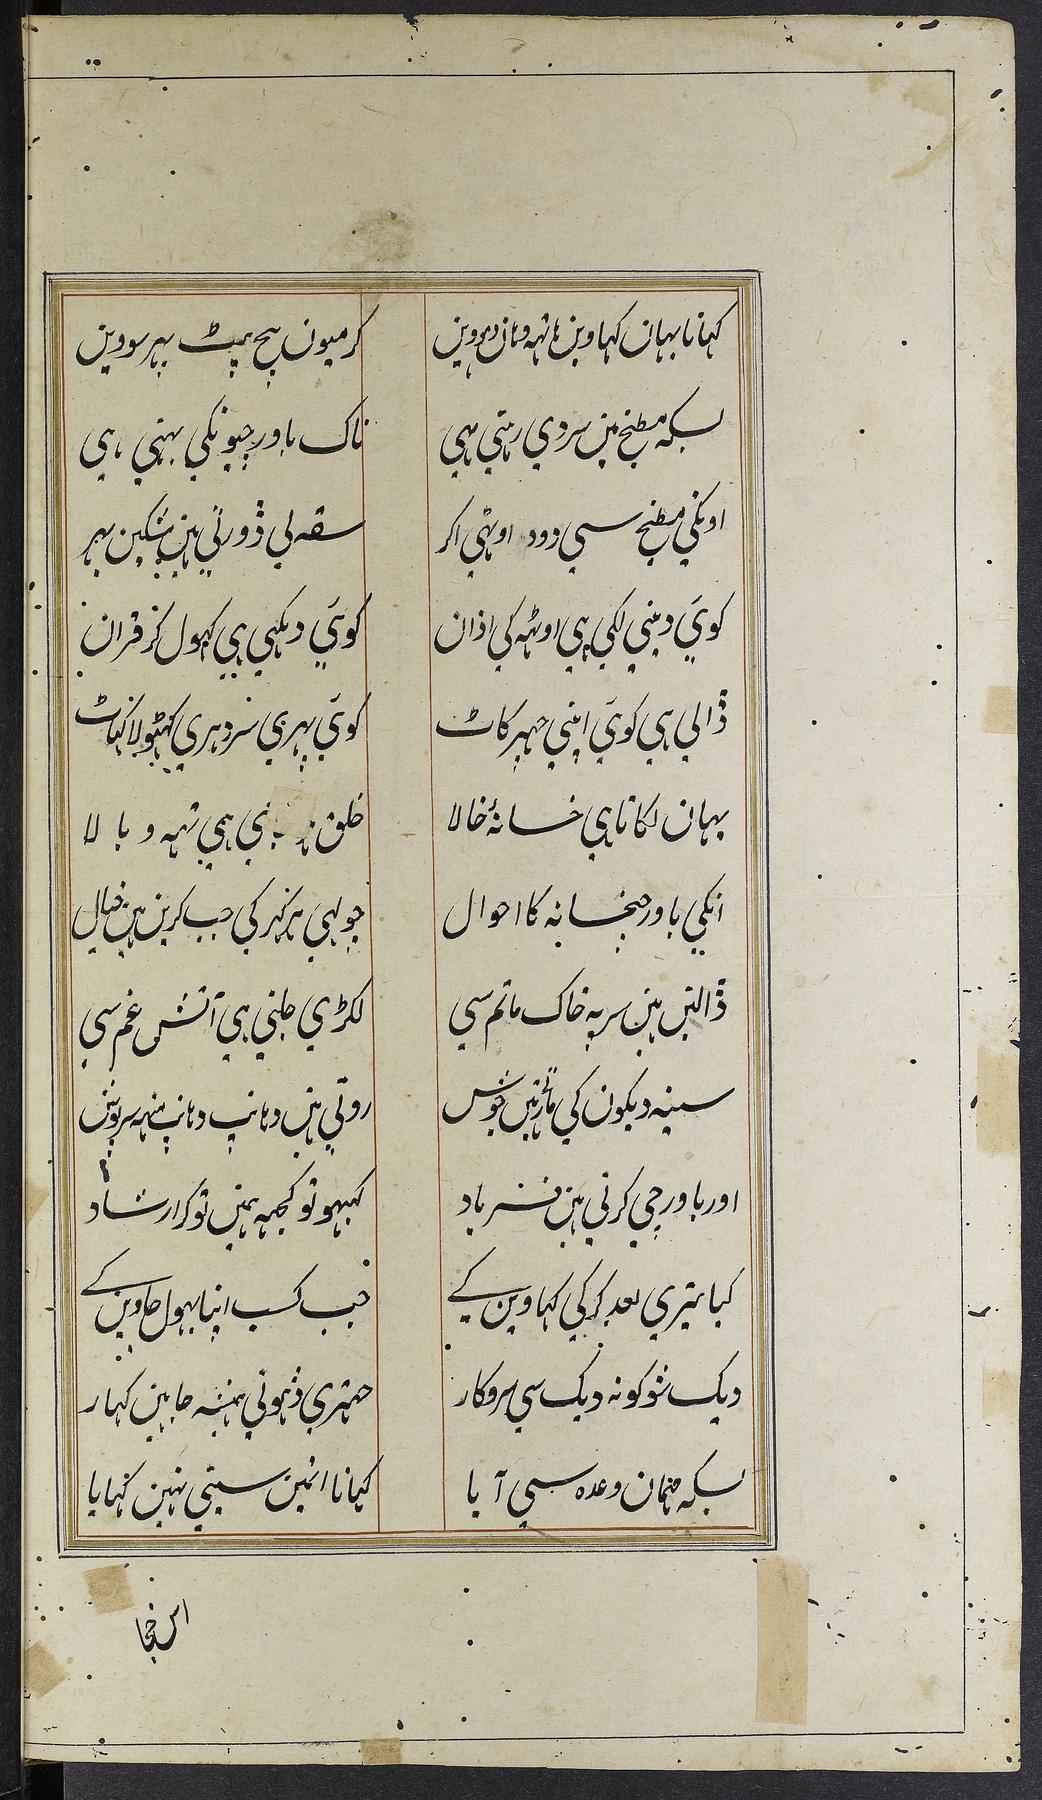 کہانا یہان کہاوین ہاتہہ وہان دہووین
کرمیون بیچ پیٹ بہر سووین
بسکہ مطبخ مین سردی رہتی ہی
ناک باورچیونکی بہتی ہی
اونکی مطبخ سی دود اوٹہی اکر
سقہ لی ڈورتی ہین مشکین بہر
کویٔ دینی لکی ہی اوٹہہ کی اذان
کویٔ دیکہی ہی کہول کر قران
ڈالی ہی کویٔ اپنی چہپر کاٹ
کویٔ پہری سر دہری کہٹولا کہاٹ
یہان لکاتا ہی خسانۂ خالا
خلق ہی تہہ و بالا
انکی باورچیخانہ کا احوال
چولہی ہر کہر کی جب کرین ہین خیال
ڈالتین ہین سر پہ خاک ماتم سی
لکڑی جلتی ہی آتش غم سی
سینہ دیکون کی مارتین جوش
روتی ہین دہانپ دہانپ منہہ سرپوش
اور باورچی کرتی ہین فریاد
کبہو تو کچہہ ہمین تو کر ارشاد
کیا تیری بعد کر کی کہاوین کے
جب کسب اپنا بہول جاوین کے
دیک شو کو نہ دیک سی سروکار
جہتری ڈہوتی ہمیشہ جا ہین کہار
بسکہ مہمان وعدہ سی آیا
کہانا انین سیتی نہین کہایا